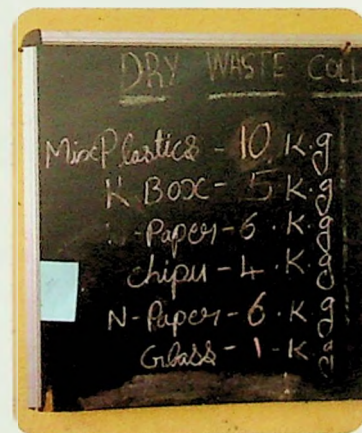 DRY WASTE COLL
Mix Plastics - 10 K.g
K Box - 5 K.g
-Paper - 6 . K g
chipu - 4 . K g
N-Paper - 6 . K g
Glass - 1 - K g